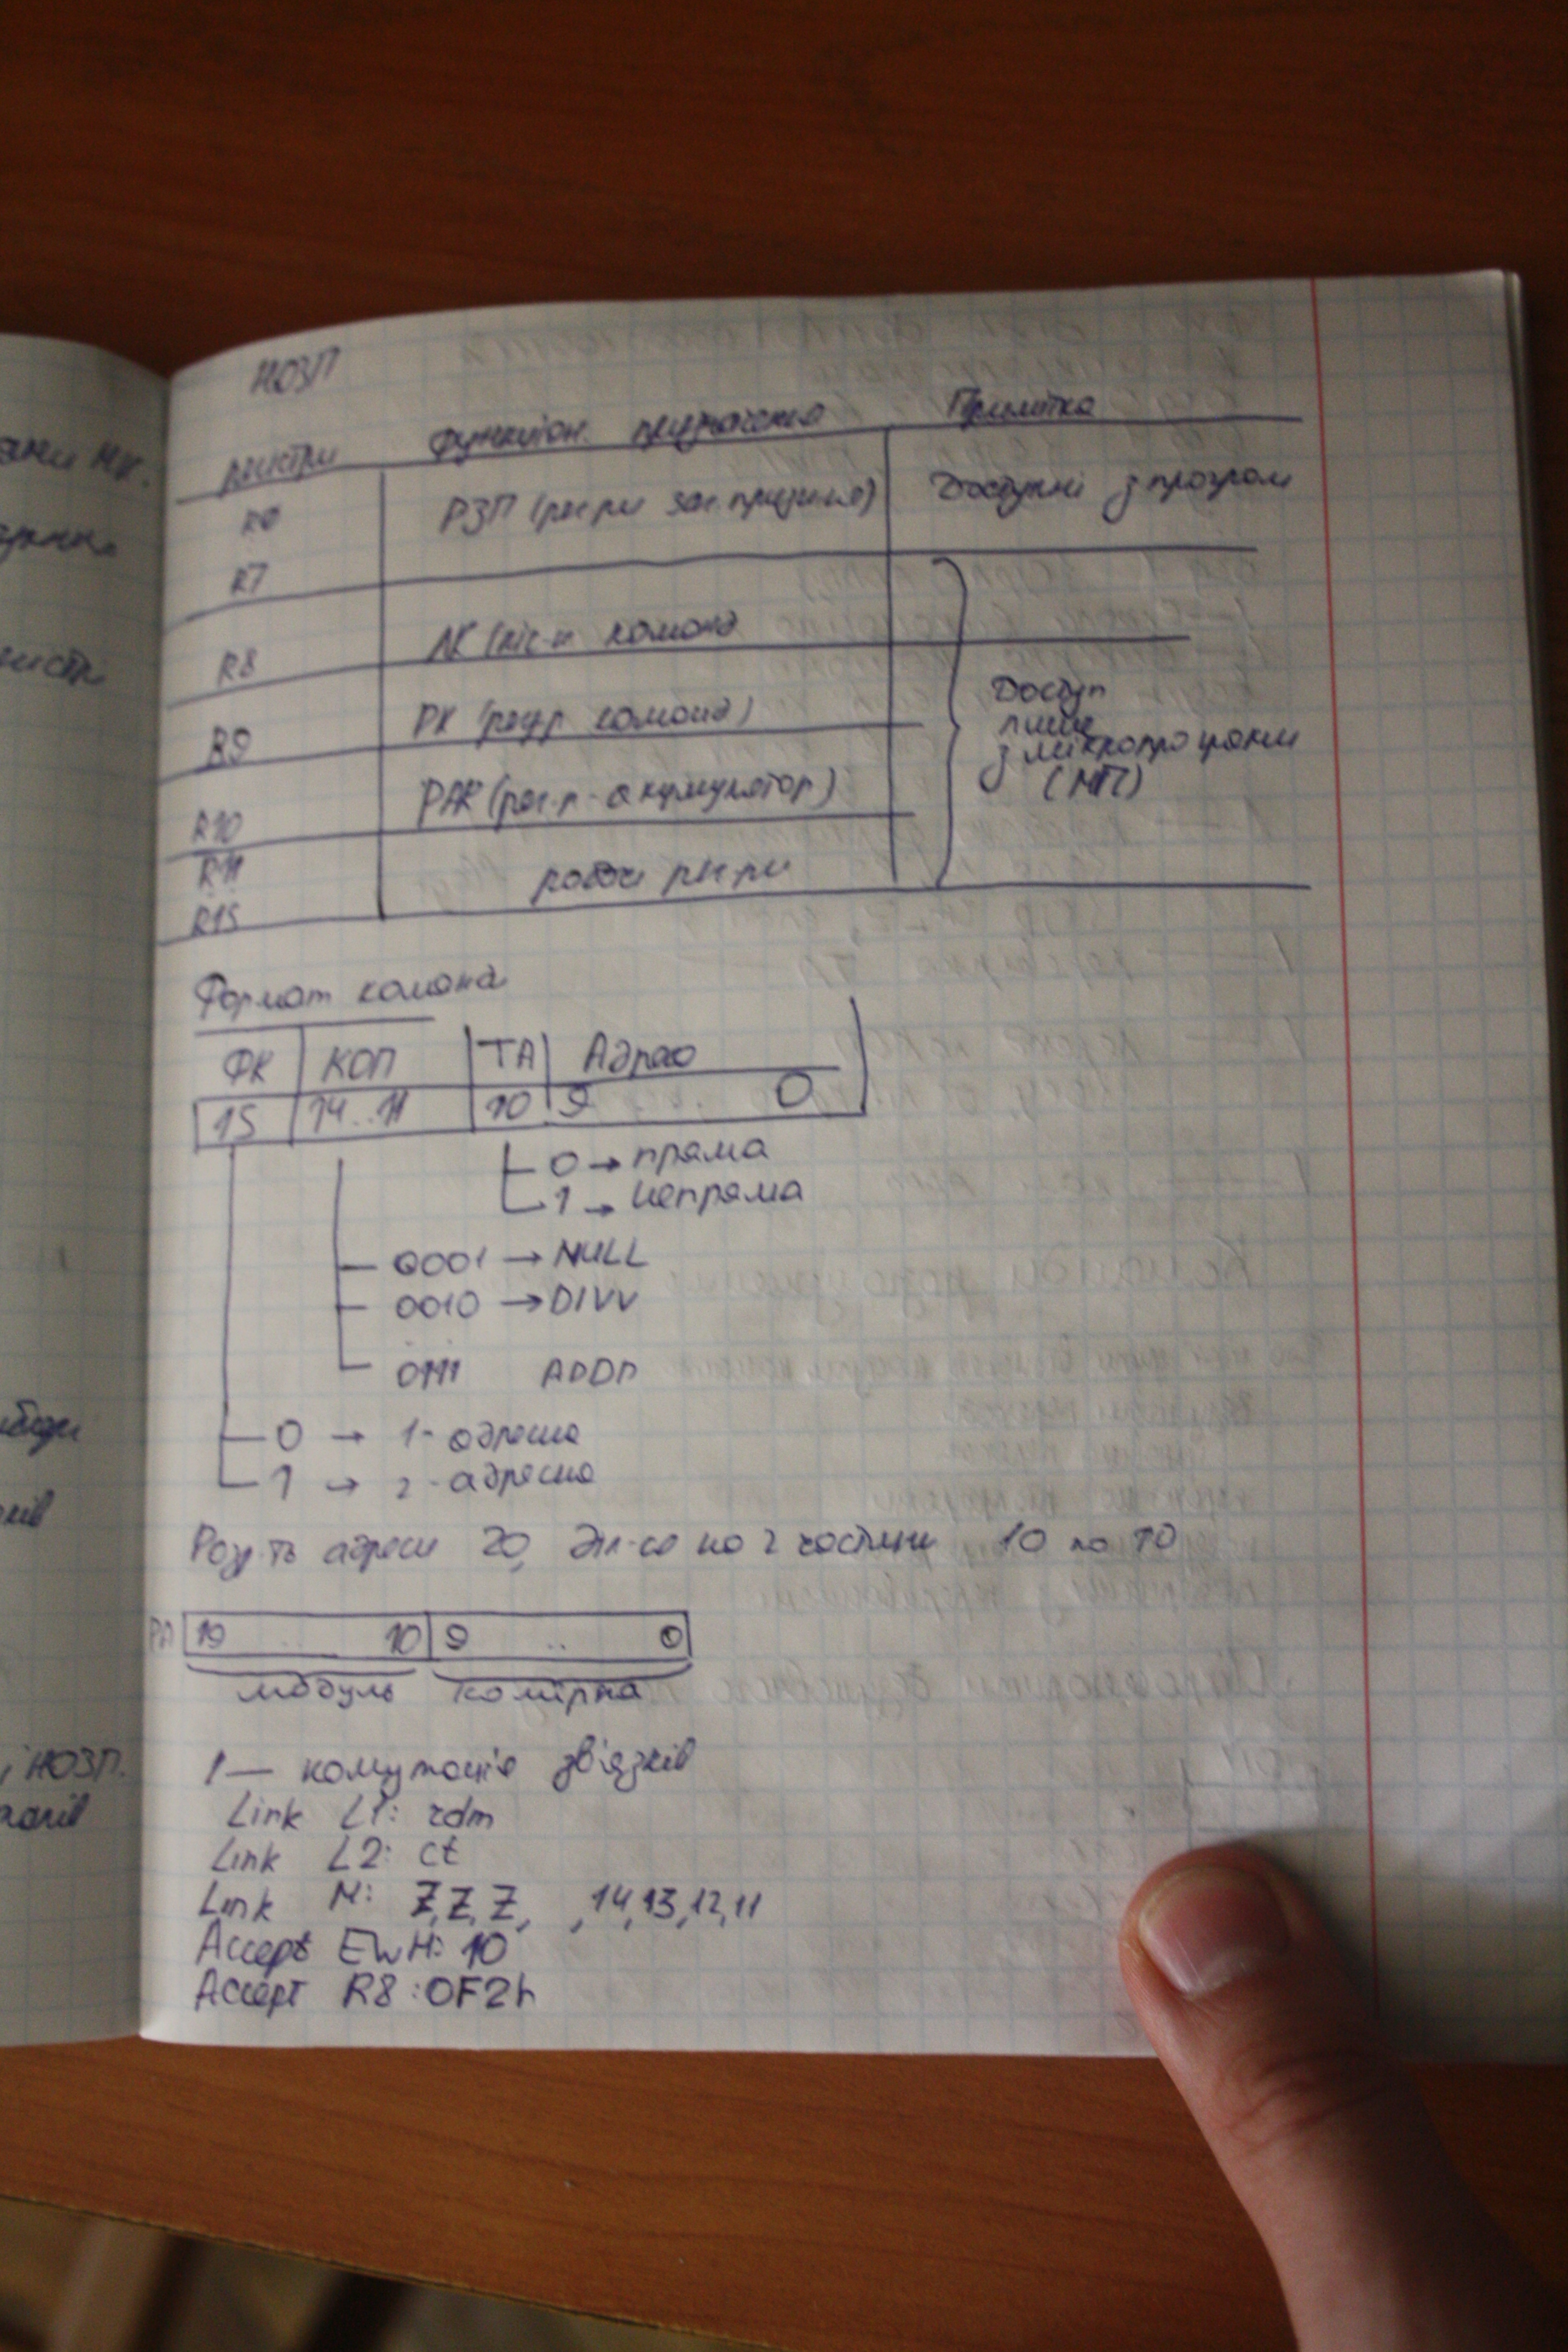 НОЗП
регістри функціон. призначення Примітка
R0 РЗП (рег-ри заг. признчення) Доступні з програм
R7
R8 (ліч-к команд
R9 РК (регр команд)
Доступ
лише
з мікропрограми
(МП)
R10 РАК (рег-р-акумулятор)
R11
робочі рег-ри
R15
Формат команд
ФК КОП ТА Адреса
15 14..11 10 9 ... 0
0 → пряма
1 → непряма
0001 → NULL
0010 → DIVV
0111 ADDD
0 → 1-адресна
1 → 2-адресна
Розр-ть адреси 20, діл-ся на 2 частини 10 по 10
РА 19 .. 10 9 .. 0
модуль комірка
1— комутація зв'язків
Link L1: rdm
Link L2: ct
Link M: Z,Z,Z, ,14,13,12,11
Accept EwH: 10
Accept R8:0F2h
ани МК.
і НОЗП.